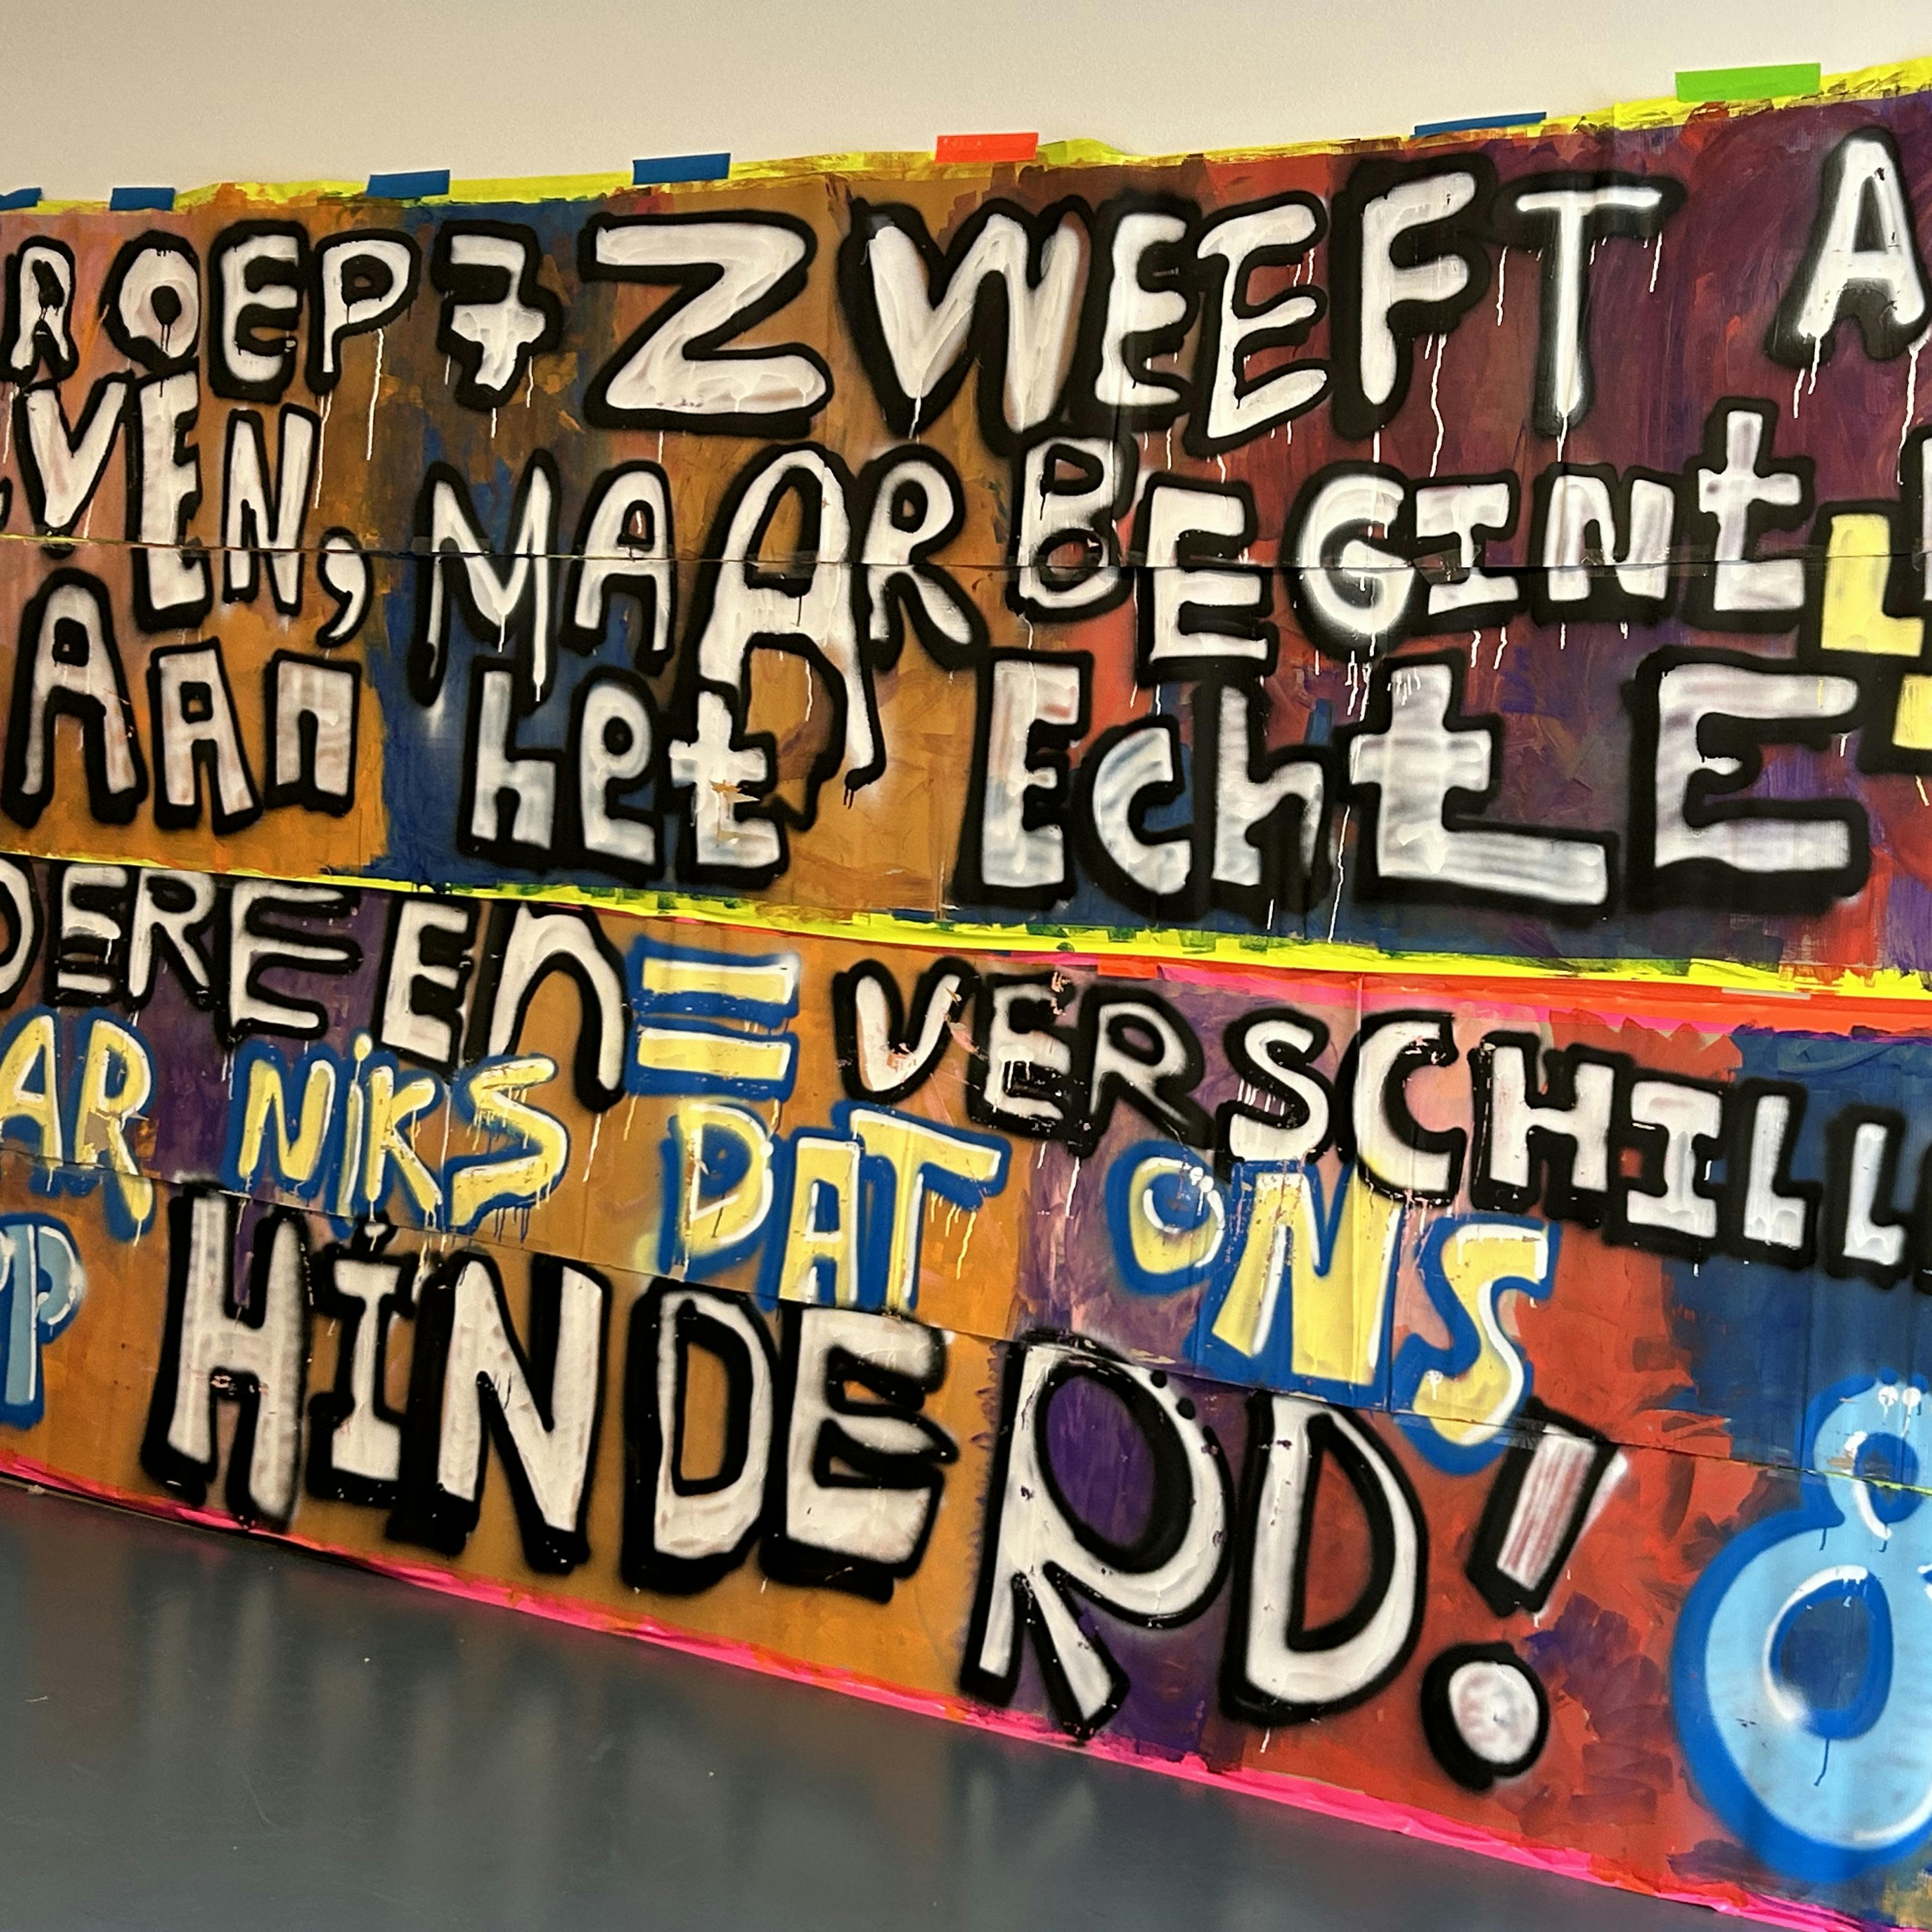 ROEP 7 ZWEEFT A
VEN, MAAR BEGINt L
AAn het EchtE
DEREEEn = VERSCHILL
AR NiKS DAT ONS
P HINDERD! 8